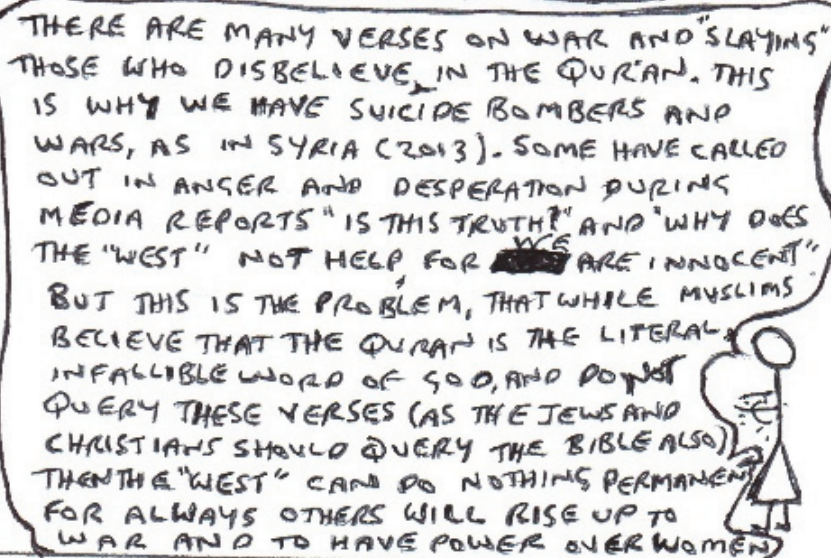 THERE ARE MANY VERSES ON WAR AND "SLAYING"
THOSE WHO DISBELIEVE, IN THE QUR'AN. THIS
IS WHY WE HAVE SUICIDE BOMBERS AND
WARS, AS IN SYRIA (2013). SOME HAVE CALLED
OUT IN ANGER AND DESPERATION DURING
MEDIA REPORTS "IS THIS TRUTH?" AND "WHY DOES
THE "WEST" NOT HELP, FOR WE ARE INNOCENT"
BUT THIS IS THE PROBLEM, THAT WHILE MUSLIMS
BELIEVE THAT THE QURAN IS THE LITERAL,
INFALLIBLE WORD OF GOD, AND DO NOT
QUERY THESE VERSES (AS THE JEWS AND
CHRISTIANS SHOULD QUERY THE BIBLE ALSO)
THEN THE "WEST" CAN DO NOTHING PERMANENT
FOR ALWAYS OTHERS WILL RISE UP TO
WAR AND TO HAVE POWER OVER WOMEN